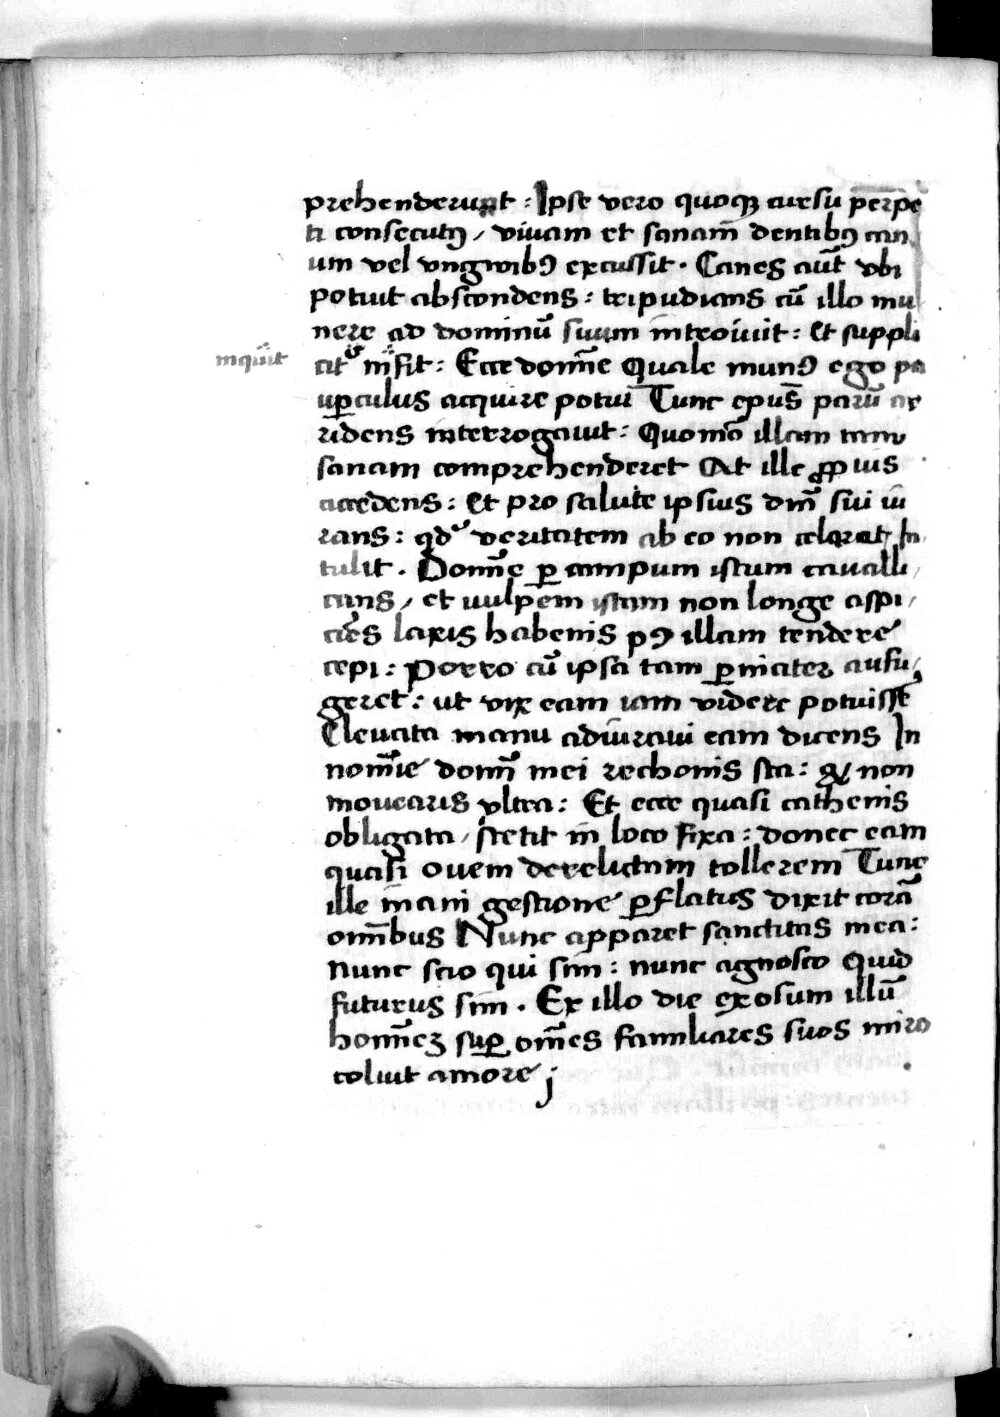 prehenderunt : Ipse vero quoqꝫ cursu perpe
ti consecutꝰ / vivam et sanam̄ dentibꝰ can
um vel vngwibꝰ excussit . Canes aūt vbi
potuit abscondens : tripudians cū illo mu
nere ad dominū suum introivit : Et suppli
inquit
Ecce domīe Quale munꝰ ego pa
uꝑculus acquire potui Tunc epūs parū ar
ridens interrogavit : Quomō illam tam
sanam comprehenderet At ille ꝓpius
accedens : Et pro salute ipsius dnī sui iu
rans : qd veritatem ab eo non celaret In
tulit . Domīe ꝑ campum istum cavalli
cans / et vulpem istam non longe aspi
ciēs laxis habenis pꝰ illam tendere
cepi : Porro cū ipsa tam ꝑniciter aufu
geret : ut vix eam iam videre potuissē
Elevata manu adiuravi eam dicens In
nomīe domī mei rechonis sta : et non
movearis vltra : Et ecce quasi cathenis
obligata / stetit in loco fixa : donec eam
quasi ovem derelictam tollerem Tunc
ille inani gestione ꝑflatus dixit corā
omībus Nunc apparet sanctitas mea :
nunc scio qui sim : nunc agnosco Quid
futurus sim . Ex illo die exosum illū
homīeꝫ suꝑ omēs familiares suos miro
coluit amore j